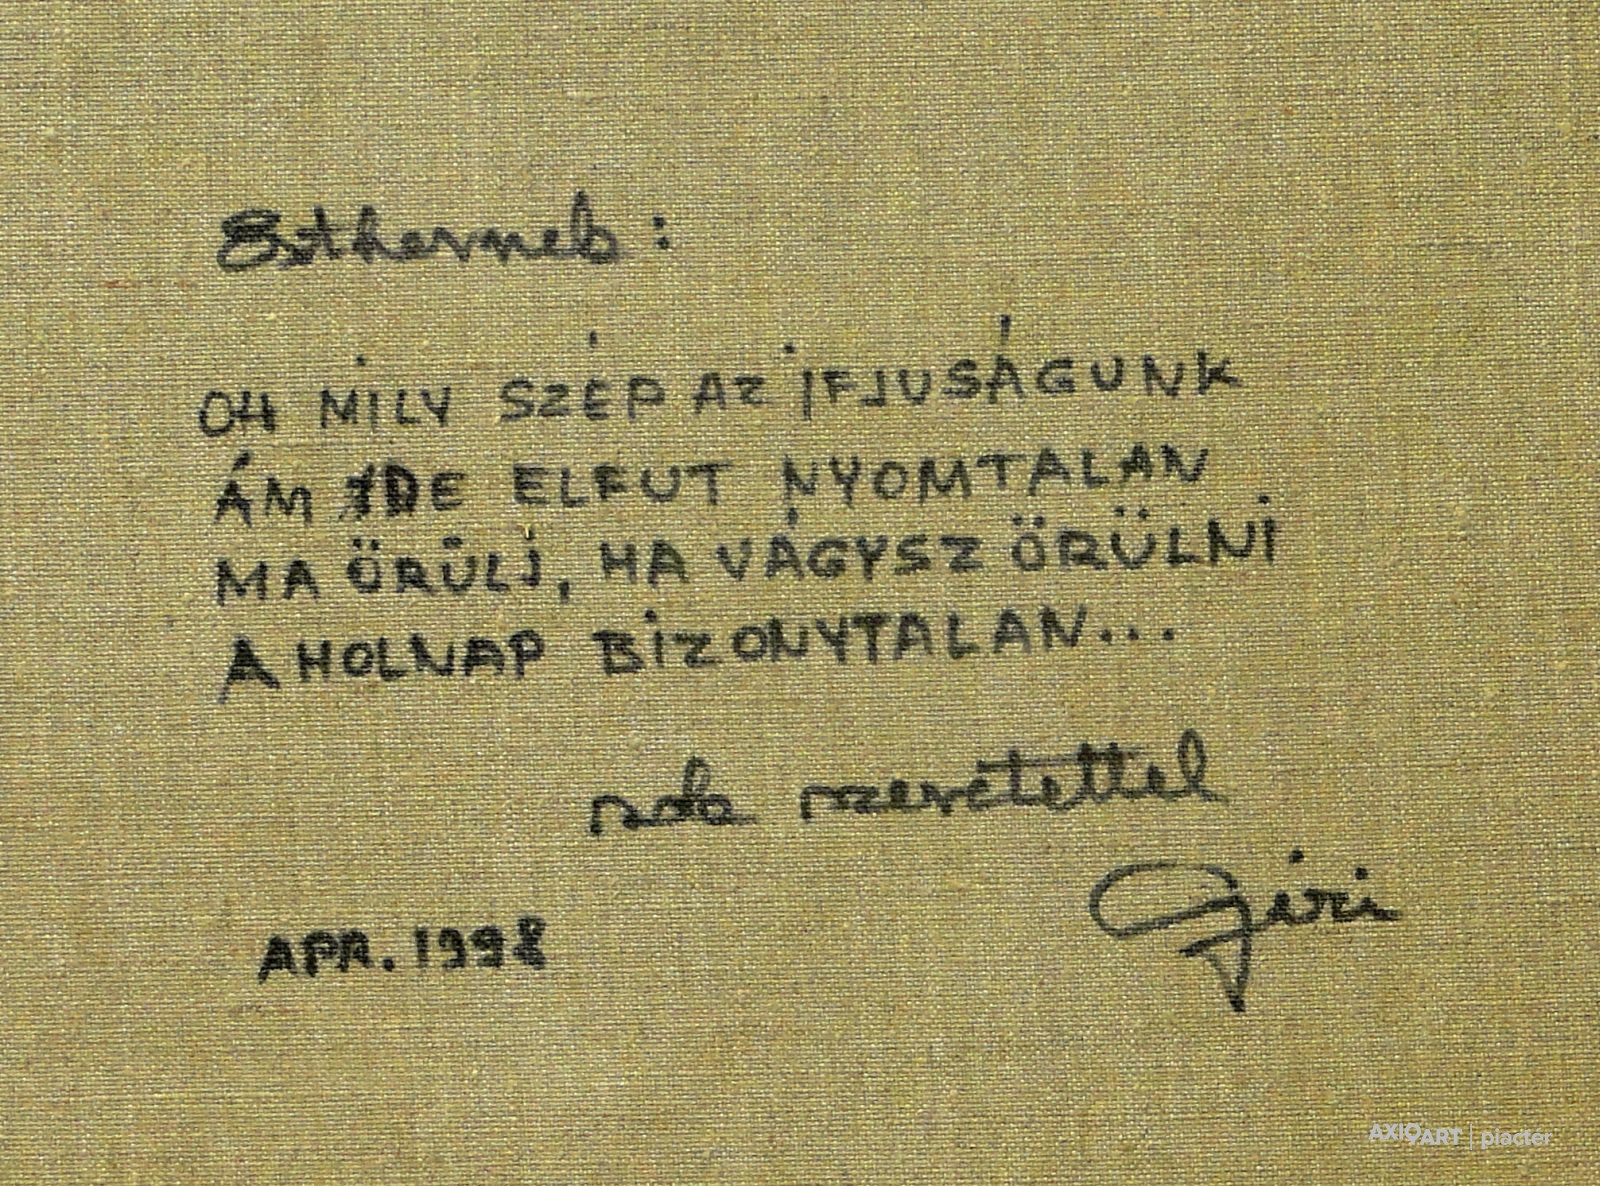 Esthernek:
OH MILY SZÉP AZ IFJUSÁGUNK
ÁM DE ELFUT NYOMTALAN
MA ÖRÜLJ, HA VÁGYSZ ÖRÜLNI
A HOLNAP BIZONYTALAN...
sok szeretettel
Géri
APR. 1998
AXIOART | piacter